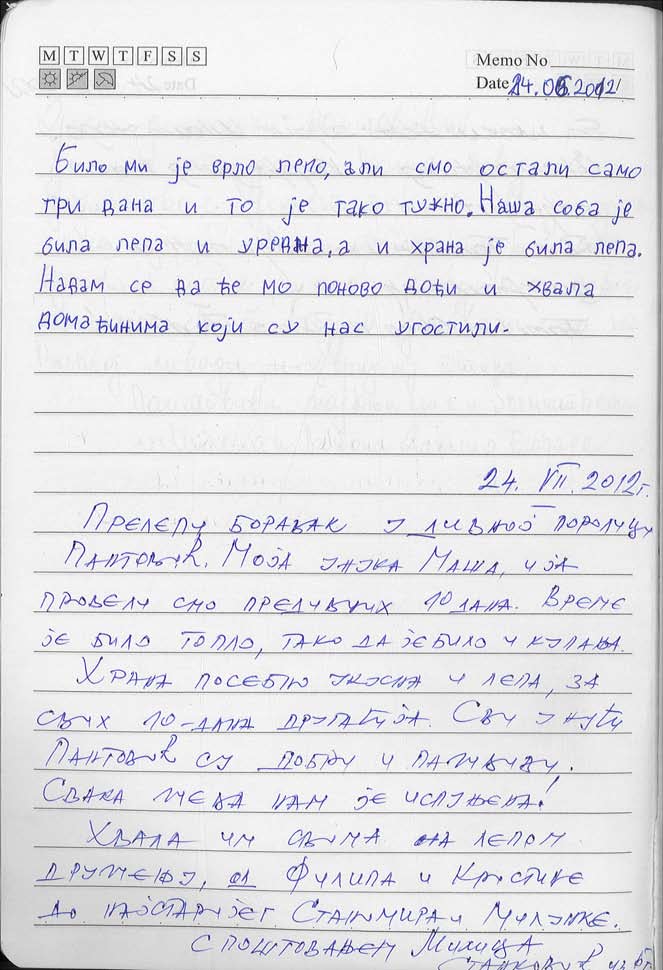 M T W T F S S
Memo No
Date 24.06.2012
Било ми је врло лепо, али смо остали само
три дана и то је тако тужно. Наша соба је
била лепа и уредна, а и храна је била лепа.
Надам се да ће мо поново доћи и хвала
домаћинима који су нас угостили.
24. VII. 2012г.
Прелепи боравак у дивној породици
Пантовић. Моја унука Маша, и ја
провели смо предивних 10 дана. Време
је било топло, тако да је било и купања.
Храна посебно укусна и лепа, за
свих 10-дана другачија. Сви у кући
Пантовић су добри и пажљиви.
Свака жеља нам је испуњена!
Хвала им свима на лепом
дружењу, од Филипа и Кристине
до најстаријег Станимира и Милунке.
С поштовањем Милица
Станковић из